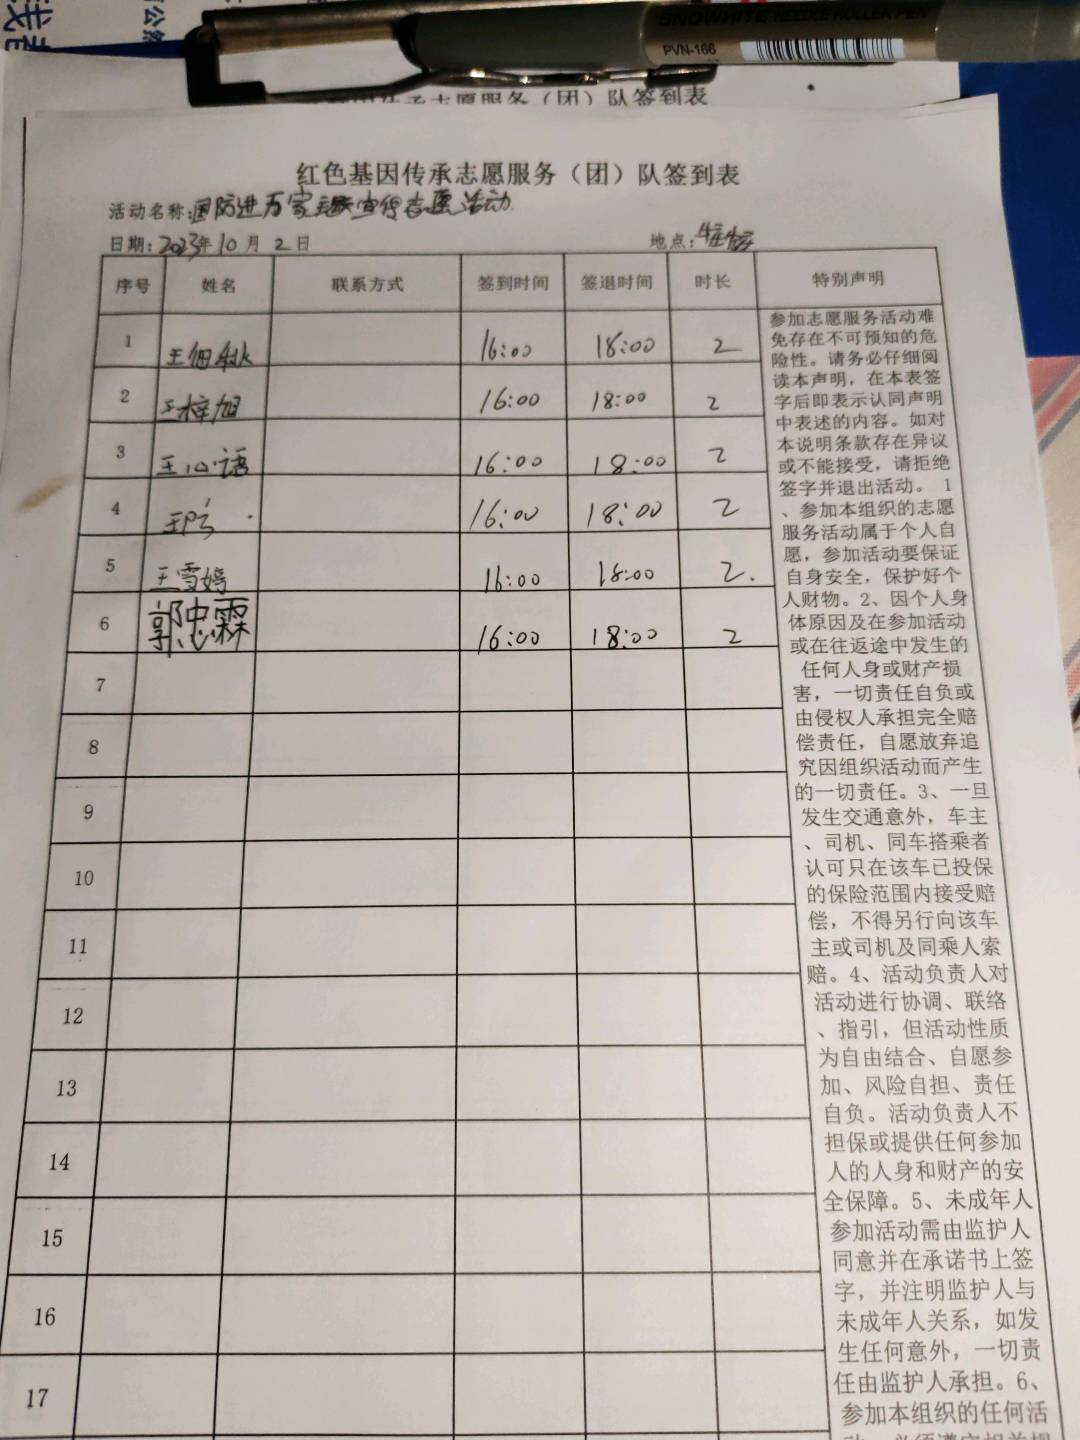 SNOWHITE NEEDLE ROLLER PEN
PVN-166
志愿服务(团)队签到表
红色基因传承志愿服务(团)队签到表
活动名称:国防进万家主题宣传志愿活动
日期:2023年10月2日 地点:
序号 姓名 联系方式 签到时间 签退时间 时长 特别声明
1 王佃秋 16:00 18:00 2
2 王梓旭 16:00 18:00 2
3 王心语 16:00 18:00 2
4 16:00 18:00 2
5 王雪婷 16:00 18:00 2.
6 郭忠霖 16:00 18:00 2
7
8
9
10
11
12
13
14
15
16
17
参加志愿服务活动难
免存在不可预知的危
险性。请务必仔细阅
读本声明,在本表签
字后即表示认同声明
中表述的内容。如对
本说明条款存在异议
或不能接受,请拒绝
签字并退出活动。 1
、参加本组织的志愿
服务活动属于个人自
愿,参加活动要保证
自身安全,保护好个
人财物。2、因个人身
体原因及在参加活动
或在往返途中发生的
任何人身或财产损
害,一切责任自负或
由侵权人承担完全赔
偿责任,自愿放弃追
究因组织活动而产生
的一切责任。3、一旦
发生交通意外,车主
、司机、同车搭乘者
认可只在该车已投保
的保险范围内接受赔
偿,不得另行向该车
主或司机及同乘人索
赔。4、活动负责人对
活动进行协调、联络
、指引,但活动性质
为自由结合、自愿参
加、风险自担、责任
自负。活动负责人不
担保或提供任何参加
人的人身和财产的安
全保障。5、未成年人
参加活动需由监护人
同意并在承诺书上签
字,并注明监护人与
未成年人关系,如发
生任何意外,一切责
任由监护人承担。6、
参加本组织的任何活